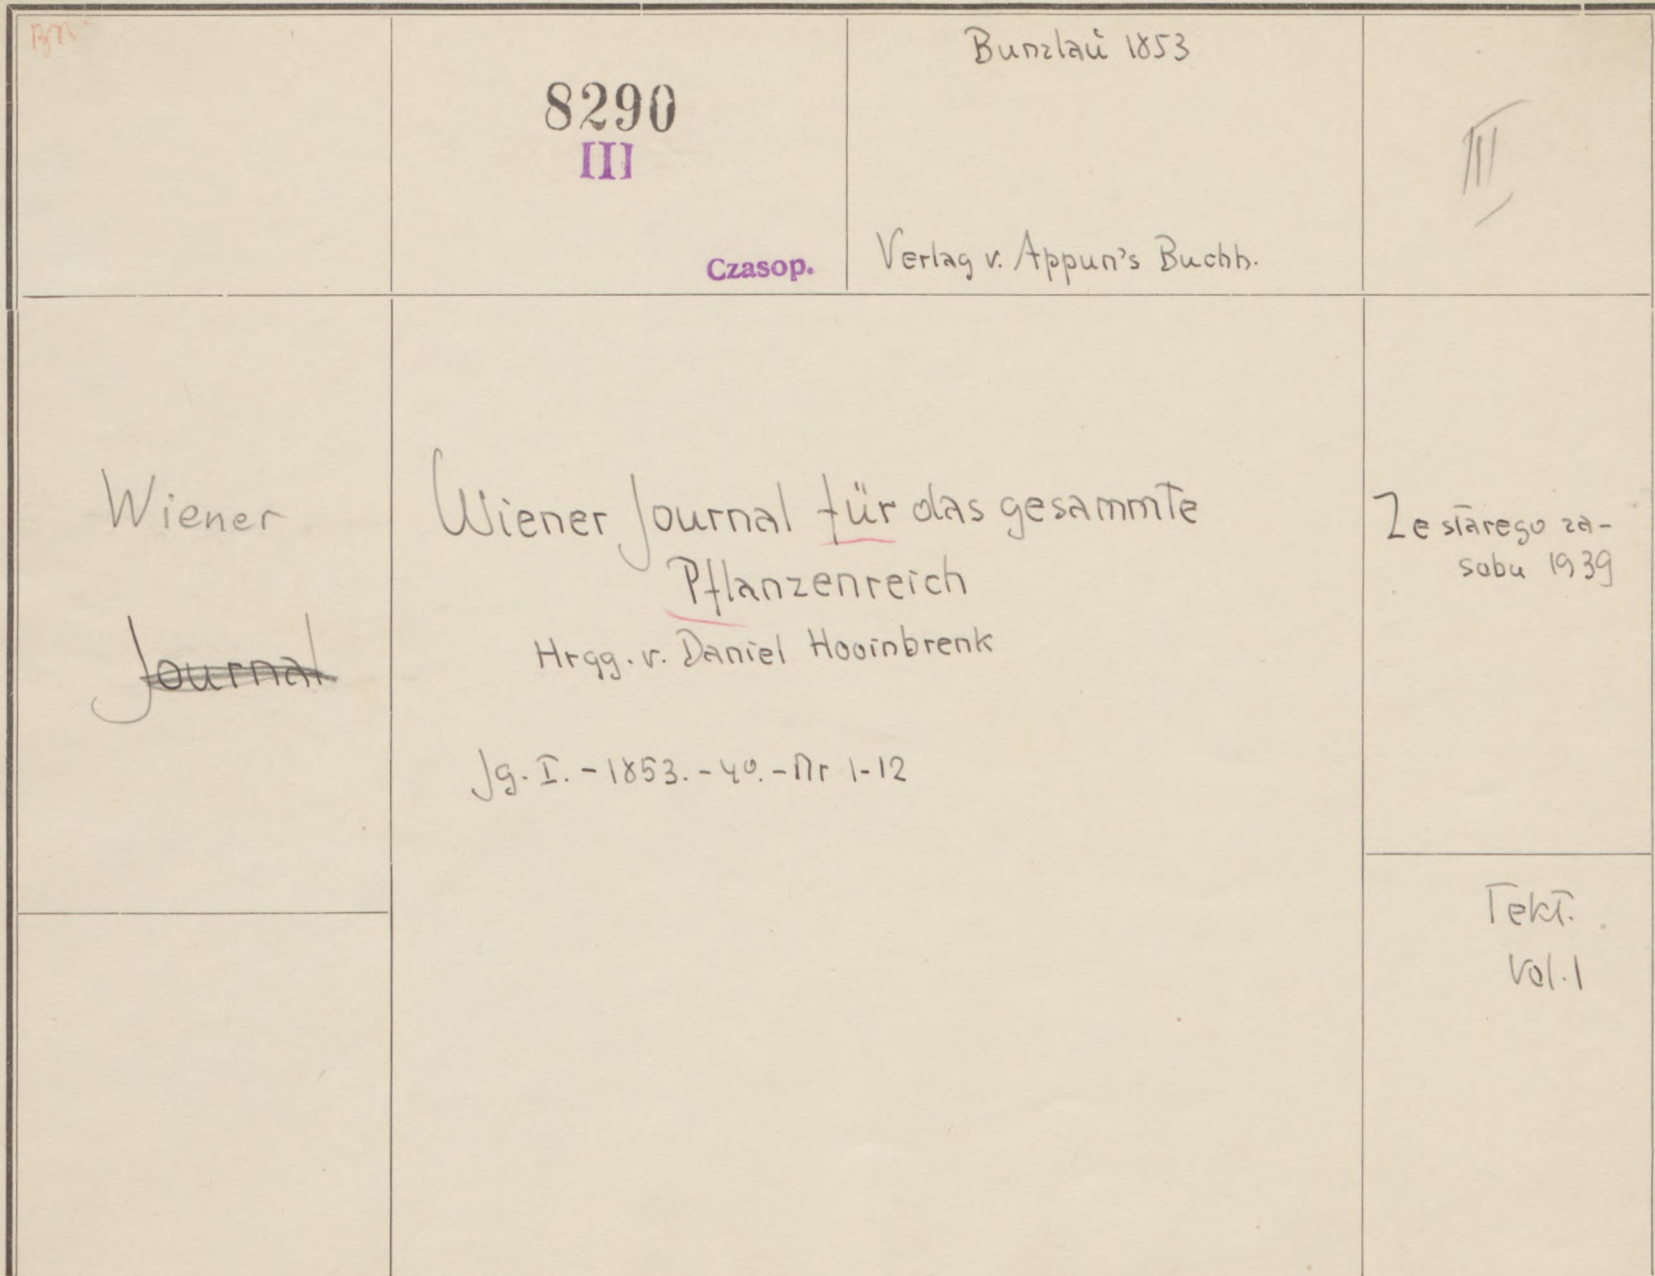 BN
8290
III
Czasop.
Bunzlau 1853
Verlag v. Appun's Buchh.
III
Wiener
Journal
Wiener Journal für das gesammte
Pflanzenreich
Hrgg. v. Daniel Hooinbrenk
Jg. I. - 1853. - 4º. - Nr 1-12
Ze starego za-
sobu 1939
Tekt.
Vol. 1